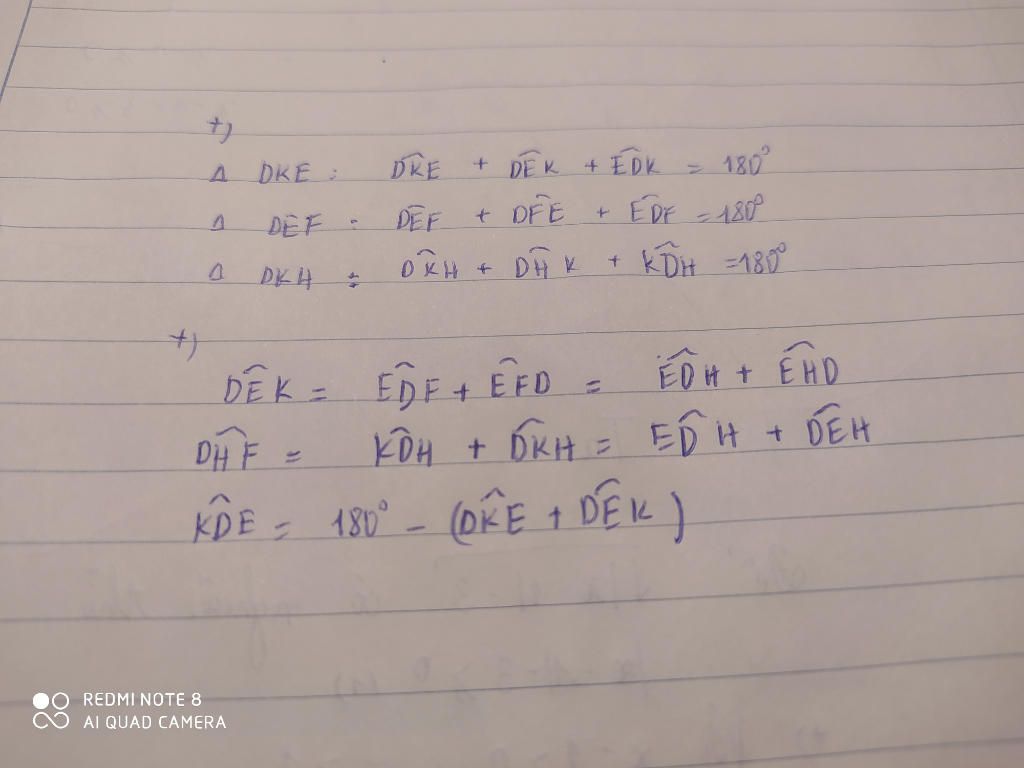 +)
Δ DKE : DK̂E + DÊK + ED̂K = 180°
Δ DEF : DÊF + DF̂E + ED̂F = 180°
Δ DKH : DK̂H + DĤK + KD̂H = 180°
+)
DÊK = ED̂F + EF̂D = ED̂H + EĤD
DĤF = KD̂H + DK̂H = ED̂H + DÊH
KD̂E = 180° - (DK̂E + DÊK)
REDMI NOTE 8
AI QUAD CAMERA